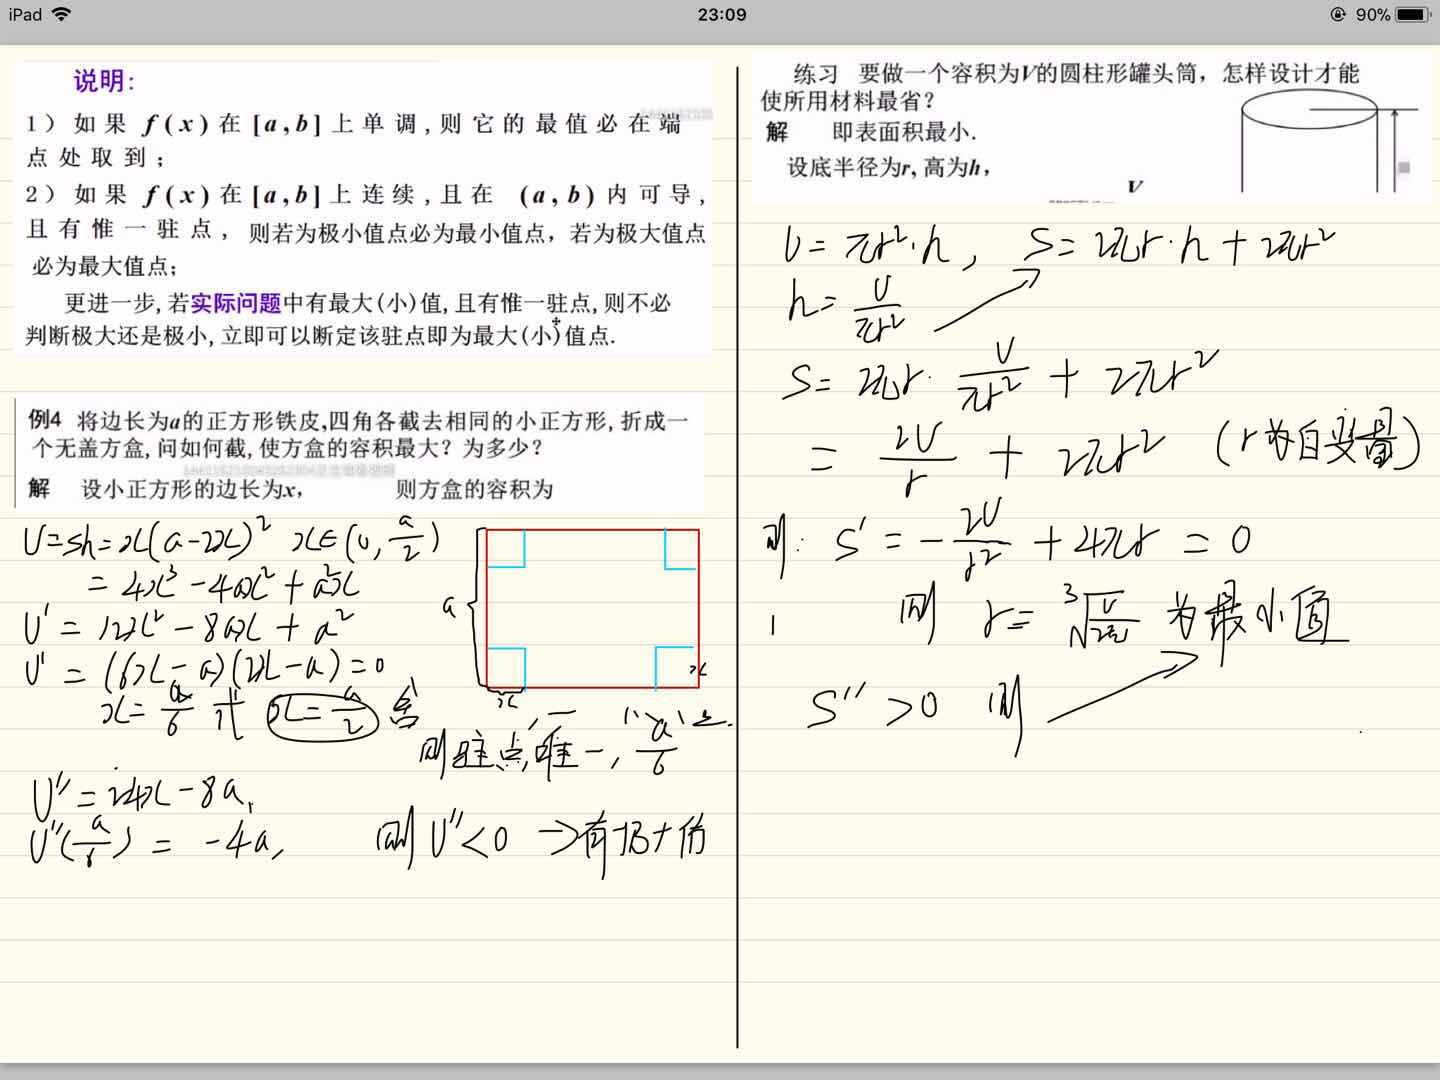 iPad
23:09
90%
说明:
1) 如果 f(x) 在 [a,b] 上单调,则它的最值必在端
点处取到;
2) 如果 f(x) 在 [a,b] 上连续,且在 (a,b) 内可导,
且有惟一驻点, 则若为极小值点必为最小值点, 若为极大值点
必为最大值点;
更进一步,若实际问题中有最大(小)值,且有惟一驻点,则不必
判断极大还是极小,立即可以断定该驻点即为最大(小)值点.
例4 将边长为a的正方形铁皮,四角各截去相同的小正方形,折成一
个无盖方盒,问如何截,使方盒的容积最大? 为多少?
解 设小正方形的边长为x, 则方盒的容积为
V=sh=x(a-2x)² x∈(0, a/2)
=4x³-4ax²+a²x
V'=12x²-8ax+a²
V'=(6x-a)(2x-a)=0
x=a/6 或 x=a/2 舍
则驻点唯一, a/6
V''=24x-8a,
V''(a/6)=-4a, 则V''<0 →有
a
x
x
练习 要做一个容积为V的圆柱形罐头筒, 怎样设计才能
使所用材料最省?
解 即表面积最小.
设底半径为r, 高为h,
V
V=πr²·h, S=2πr·h+2πr²
h=V/πr²
S=2πr·V/πr²+2πr²
=2V/r+2πr² (r为自变量)
则: S'=-2V/r²+4πr=0
则 r=³√(V/2π) 为最小值
S''>0 则